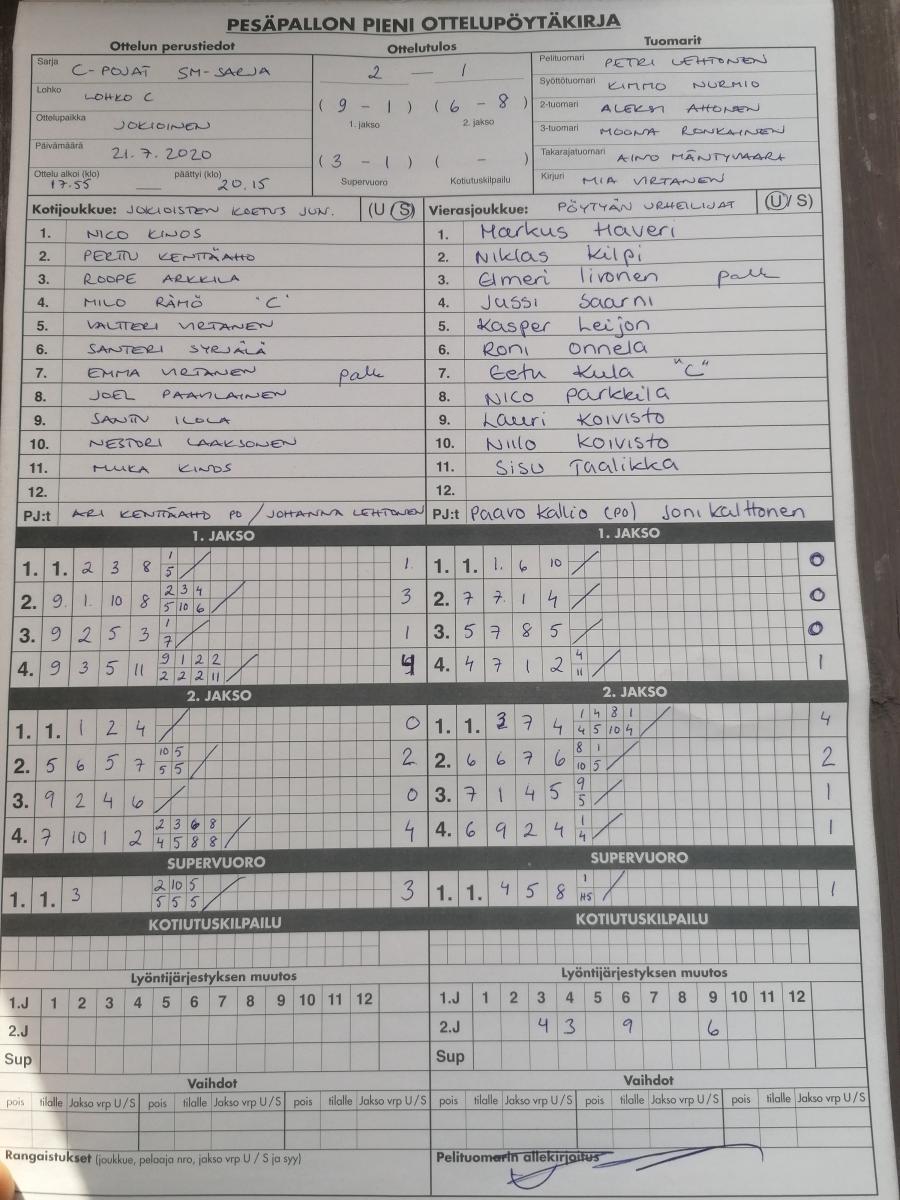 PESÄPALLON PIENI OTTELUPÖYTÄKIRJA
Ottelun perustiedot
Sarja C-POJAT SM-SARJA
Lohko LOHKO C
Ottelupaikka JOKIOINEN
Päivämäärä 21.7.2020
Ottelu alkoi (klo) päättyi (klo)
17.55 — 20.15
Ottelutulos
2 — 1
( 9 - 1 ) ( 6 - 8 )
1. jakso 2. jakso
( 3 - 1 ) ( - )
Supervuoro Kotiutuskilpailu
Tuomarit
Pelituomari PETRI LEHTONEN
Syöttötuomari KIMMO NURMIO
2-tuomari ALEKSI AHONEN
3-tuomari MOONA RONKAINEN
Takarajatuomari AINO MÄNTYVAARA
Kirjuri MIA VIRTANEN
Kotijoukkue: JOKIOISTEN KOETUS JUN. (U / S)
1. NICO KINOS
2. PERTTU KENTTÄAHO
3. ROOPE ARKKILA
4. MILO RÄMÖ "C"
5. VALTTERI VIRTANEN
6. SANTERI SYRJÄLÄ
7. EMMA VIRTANEN palk
8. JOEL PAAVILAINEN
9. SANTTU ILOLA
10. NESTORI LAAKSONEN
11. MIIKA KINOS
12.
PJ:t ARI KENTTÄAHO PO / JOHANNA LEHTONEN
Vierasjoukkue: PÖYTYÄN URHEILIJAT (U / S)
1. Markus Haveri
2. Niklas Kilpi
3. Elmeri Iivonen palk
4. Jussi Saarni
5. Kasper Leijon
6. Roni Onnela
7. Eetu Kula "C"
8. Nico Parkkila
9. Lauri Koivisto
10. Niilo Koivisto
11. Sisu Taalikka
12.
PJ:t Paavo Kallio (PO) Joni Kalttonen
1. JAKSO
1. 1. 2 3 8 1/5 / 1
2. 9 1 10 8 2 3 4 / 5 10 6 / 3
3. 9 2 5 3 1/7 / 1
4. 9 3 5 11 9 1 2 2 / 2 2 2 11 / 4
1. JAKSO
1. 1. 1. 6 10 / 0
2. 7 7 1 4 / 0
3. 5 7 8 5 / 0
4. 4 7 1 2 4/11 / 1
2. JAKSO
1. 1. 1 2 4 / 0
2. 5 6 5 7 10 5 / 5 5 / 2
3. 9 2 4 6 / 0
4. 7 10 1 2 2 3 6 8 / 4 5 8 8 / 4
2. JAKSO
1. 1. 3 7 4 1 4 8 1 / 4 5 10 4 / 4
2. 6 6 7 6 8 1 / 10 5 / 2
3. 7 1 4 5 9/5 / 1
4. 6 9 2 4 1/4 / 1
SUPERVUORO
1. 1. 3 2 10 5 / 5 5 5 / 3
SUPERVUORO
1. 1. 4 5 8 1/HS / 1
KOTIUTUSKILPAILU
KOTIUTUSKILPAILU
Lyöntijärjestyksen muutos
1.J 1 2 3 4 5 6 7 8 9 10 11 12
2.J
Sup
Lyöntijärjestyksen muutos
1.J 1 2 3 4 5 6 7 8 9 10 11 12
2.J 4 3 9 6
Sup
Vaihdot
pois tilalle Jakso vrp U / S pois tilalle Jakso vrp U / S pois tilalle Jakso vrp U / S
Vaihdot
pois tilalle Jakso vrp U / S pois tilalle Jakso vrp U / S pois tilalle Jakso vrp U / S
Rangaistukset (joukkue, pelaaja nro, jakso vrp U / S ja syy)
Pelituomarin allekirjoitus